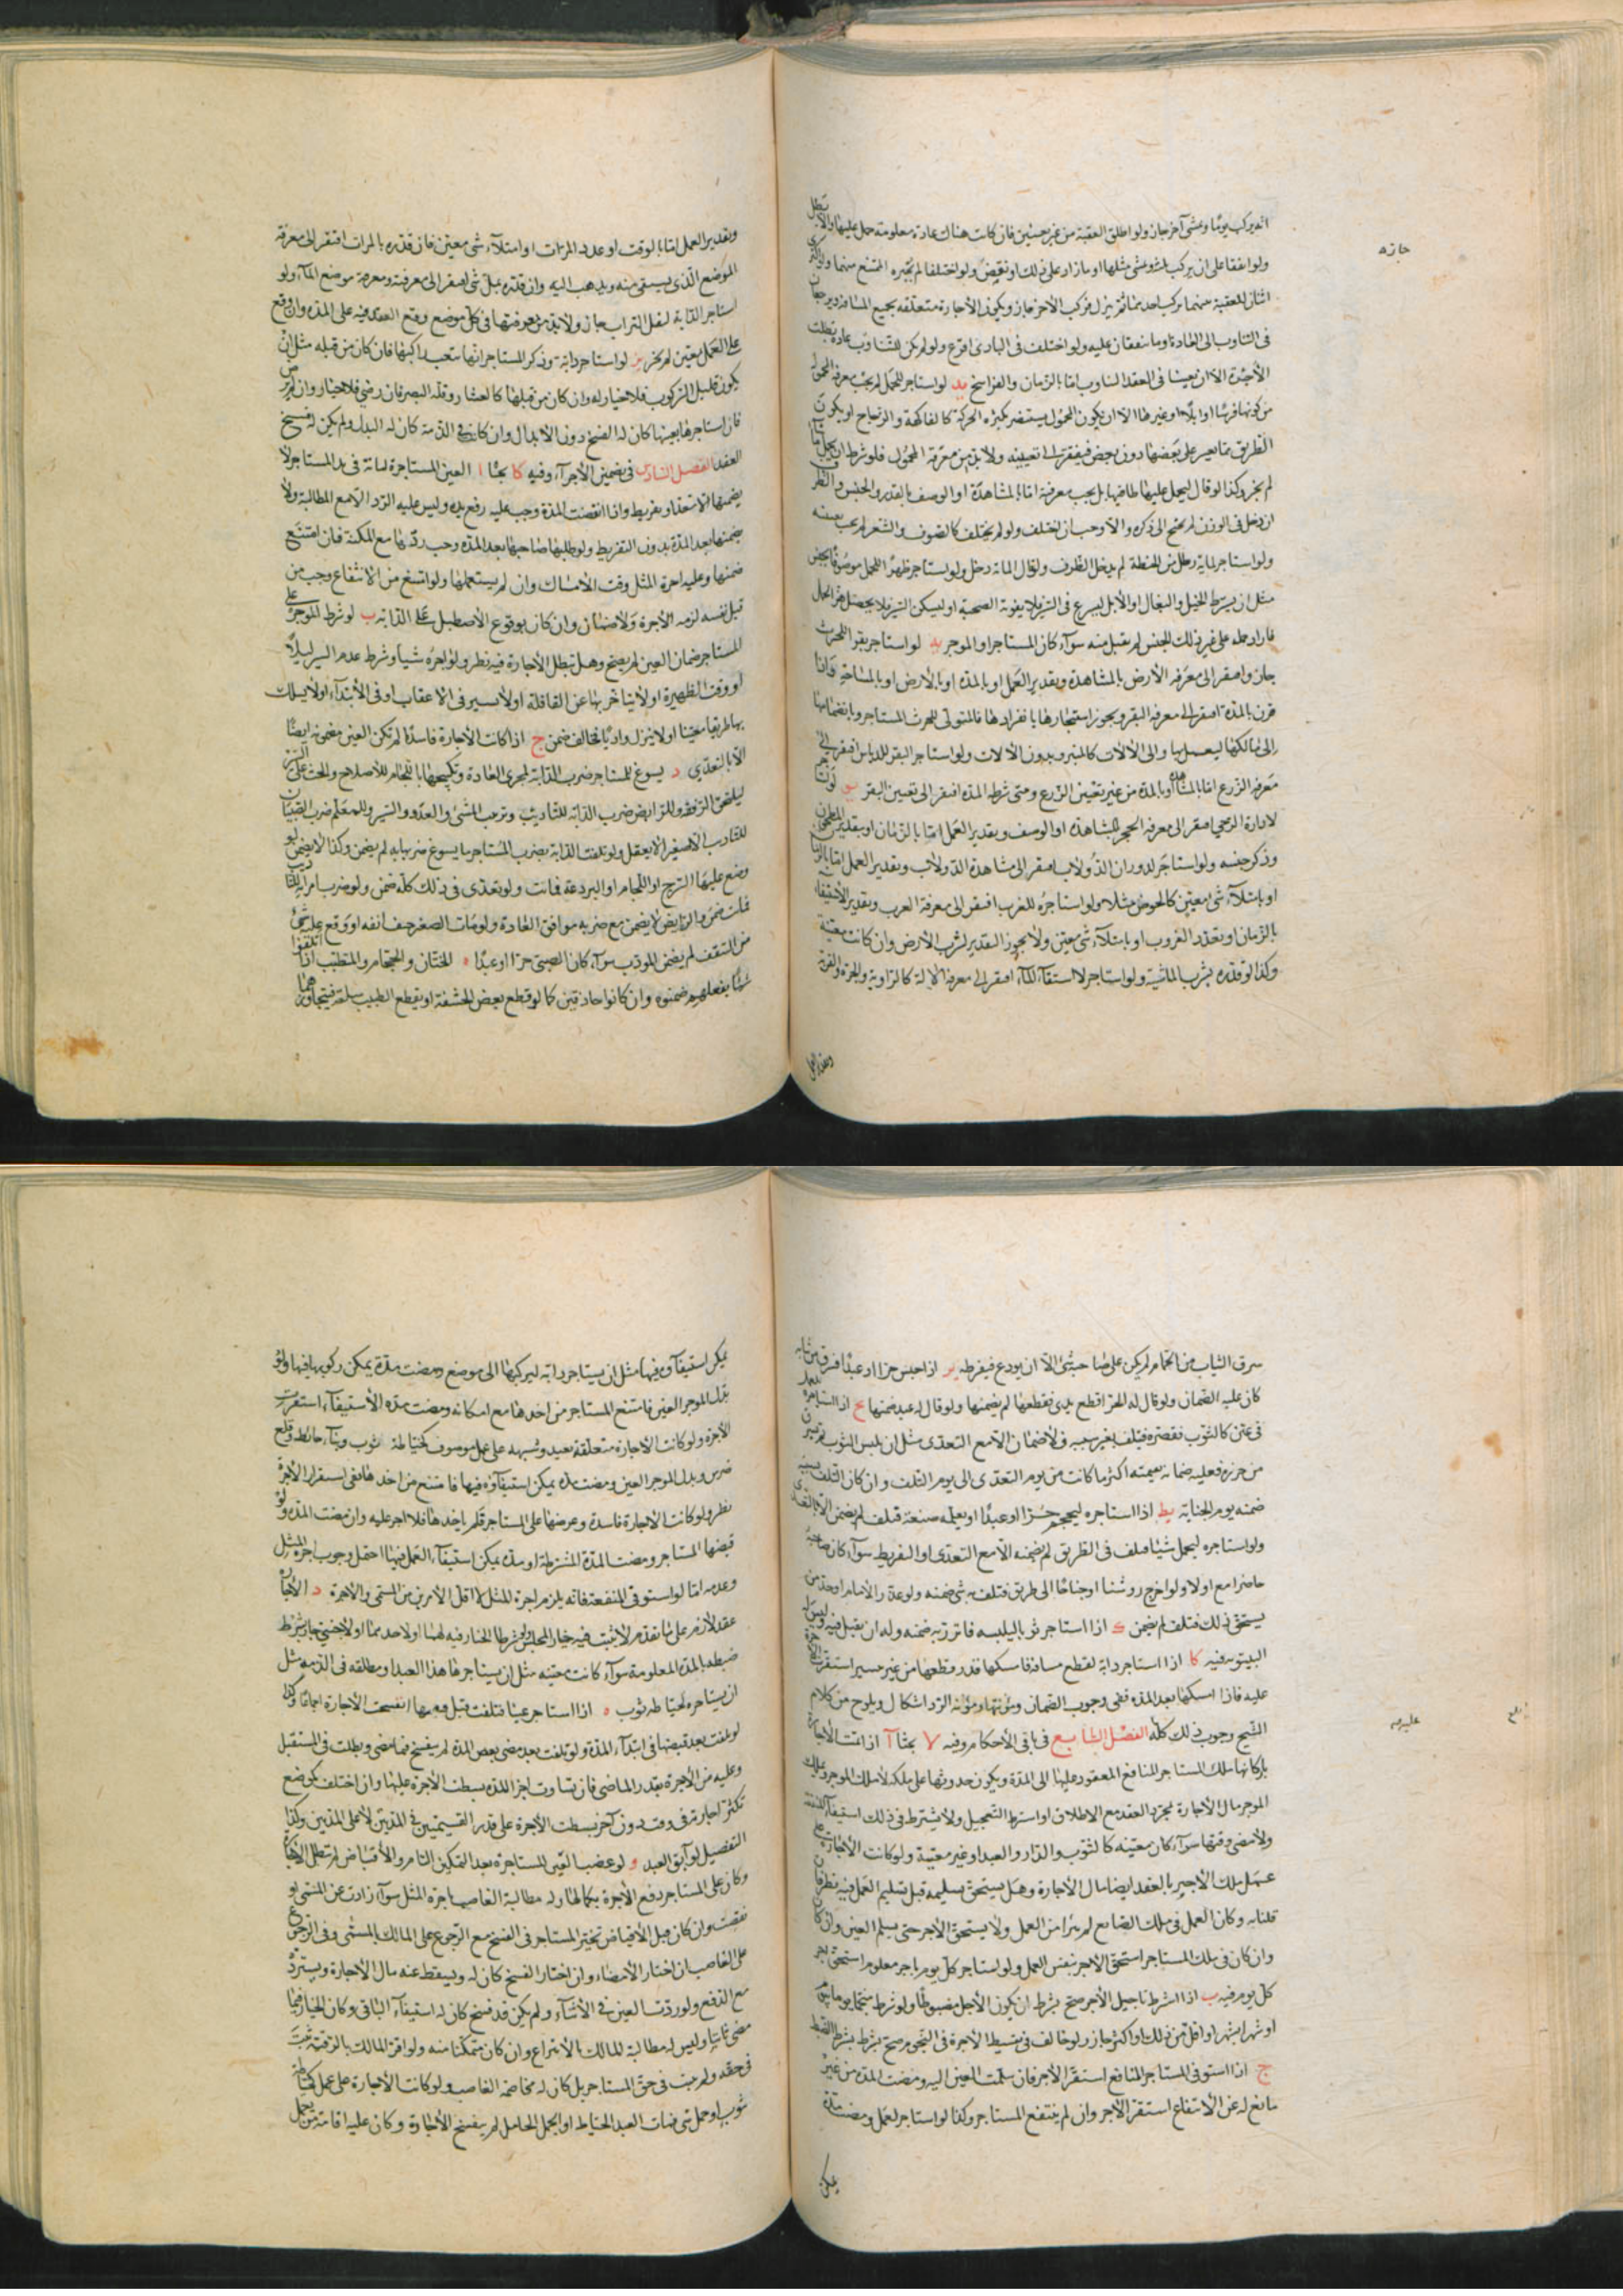 انه يركب يوما ويمشى آخر جاز ولو اطلق العقبة من غير حسنين فان كانت هناك عادة معلومة حمل عليها والا بطل
ولو اتفقا على ان يركب ويمشى مثلها او ما زاد على ذلك او نقص ولو اختلفا لم يجبر الممتنع منهما ولو اكترى
اثنان للعقبة منهما يركب احدهما ثم ينزل فيركب الآخر جاز ويكون الاجارة متعلقه بجميع المسافة ويرجعان
فى التناوب الى العادة وما يتفقان عليه ولو اختلف فى البادى اقرع ولو لم يكن للتناوب عادة بطلت
الاجرة الا ان يعينا فى العقد التناوب اما بالزمان والفراسخ يد لو استاجر للحمل لم يجب معرفة الحمولة
من كونها فرسا او ابلا او غيرهما الا ان يكون المحمول يستضر بكثرة الحركة كالفاكهة والزجاج او يكون
الطريق مما يعسر على بعضها دون بعض فيفتقر الى تعيينه ولا بد من معرفة المحمول فلو شرط ان يحمل ما شاء
لم يجز وكذا لو قال ليحمل عليها طاقتها بل يجب معرفته اما بالمشاهدة او الوصف بالقدر والجنس والظرف
ان دخل فى الوزن لم يحتج الى ذكره والا وجب ان اختلف ولو لم يختلف كالصوف والشعر لم يجب تعيينه
ولو استاجر لماية رطل من الحنطة لم يدخل الظرف ولو قال الماية دخل ولو استاجر ظهرا للحمل موصوفا بجنس
مثل ان يشرط الخيل والبغال او الابل ليسرع فى السير فلا يفوته الصحبة او ليسكن السير فلا يحصل هز الحمل
فاراد حمله على غير ذلك الجنس لم يقبل منه سوآء كان المستاجر او الموجر يه لو استاجر بقرا للحرث
جاز وافتقر الى معرفة الارض بالمشاهدة وبقدير العمل او بالمدة او بالارض او بالمساحة فاذا
قرن بالمدة افتقر الى معرفة البقر ويجوز استيجارها بانفرادها فالمتولى للحرث المستاجر وبانضمامها
الى مالكها ليعمل بها والى الآلات كالمنبر وبدون الآلات ولو استاجر البقر للدياس افتقر الى
معرفة الزرع اما بالمشاهدة او بالمدة من غير تعيين الزرع ومتى شرط المدة افتقر الى تعيين البقر يو لو استاجر
لادارة الرحى افتقر الى معرفة الحجر بالمشاهدة او الوصف وبقدير العمل اما بالزمان او بتقدير المطحون
وذكر جنسه ولو استاجر لدوران الدولاب افتقر الى مشاهدة الدولاب وبقدير العمل اما بالزمان
او بامتلآء شى معين كالحوض مثلا ولو استاجره للغرب افتقر الى معرفة الغرب وبقدير الاستيفاء
بالزمان او بعدد الغروب او بامتلآء شى معين ولا يجوز التقدير لشرب الارض وان كانت معينة
وكذا لو قدره بشرب الماشية ولو استاجر لاستقآء المآء افتقر الى معرفة الآلة كالراوية والجرة والقربة
وبقدير العمل
جازه
وبقدير العمل اما بالوقت او عدد المرات او امتلآء شى معين فان قدره بالمرات افتقر الى معرفة
الموضع الذى يستقى منه ويذهب اليه وان قدره بملء شى افتقر الى معرفته ومعرفة موضع المآء ولو
استاجر الدابة لنقل التراب جاز ولا بد من معرفتها فى كل موضع وقع العقد فيه على المدة وان وقع
على العمل بعين لم يفتقر يز لو استاجر دابة وذكر المستاجر انها متعب راكبها فان كان من قبله مثل ان
يكون قليل الركوب فلا خيار له وان كان من قبلها كالعثار وقلة البصر فان رضى فلا خيار وان لم يرض
فان استاجرها بعينها كان له الفسخ دون الابدال وان كان فى الذمة كان له البدل ولم يكن له فسخ
العقد الفصل السادس فى تضمين الاجرآء وفيه كا بحثا ا العين المستاجرة امانة فى يد المستاجر لا
يضمنها الا بتعد او تفريط واذا انقضت المدة وجب عليه رفع يده وليس عليه الرد الا مع المطالبة ولا
يضمنها بعد المدة بدون التفريط ولو طلبها صاحبها بعد المدة وجب ردها مع المكنة فان امتنع
ضمنها وعليه اجرة المثل وقت الامساك وان لم يستعملها ولو امتنع من الانتفاع وجب من
قبل نفسه لزمه الاجرة ولا ضمان وان كان بوقوع الاصطبل على الدابة ب لو شرط الموجر على
المستاجر ضمان العين لم يصح وهل تبطل الاجارة فيه نظر ولو اجره شيا وشرط عدم السير ليلا
او وقت الظهيرة او لا يتاخر بها عن القافلة او لا يسير فى الاعقاب او فى الابتدآء او لا يسلك
بها طريقا معينا او لا ينزل واديا فخالف ضمن ج اذا كانت الاجارة فاسدة لم تكن العين مضمونة ايضا
الا بالتعدى د يسوغ للمستاجر ضرب الدابة لمجرى العادة وتكبيحها باللجام للاصلاح والحث على السير
ليلحق الرفقة وللرايض ضرب الدابة للتاديب وترتيب المشى والعدو والسير وللمعلم ضرب الصبيان
للتاديب الا صغيرا لا يعقل ولو تلفت الدابة بضرب المستاجر ما يسوغ ضربها به لم يضمن وكذا لا يضمن لو
وضع عليها السرج او اللجام او البردعة فماتت ولو تعدى فى ذلك كله ضمن ولو ضرب امراته للتاديب
فماتت ضمن والرايض لا يضمن مع ضربه موافق العادة ولو مات الصغير حتف انفه او وقع عليه شى
من السقف لم يضمن المودب سوآء كان الصبى حرا او عبدا ه الختان والحجام والمتطبب اذا اتلفوا
شيا بفعلهم ضمنوه وان كانوا حاذقين كما لو قطع بعض الحشفة او يقطع الطبيب سلعة فيتجاوزها
سرق الثياب من الحمام لم يكن على صاحبه شى الا ان يودع فيفرط يز اذا حبس حرا او عبدا فسرق من ثيابه
كان عليه الضمان ولو قال له الحر اقطع يدى فقطعها لم يضمنها ولو قال له عبد ضمنها يح اذا استاجره لعمل
فى عين كالثوب فقصره فيتلف بغير سببه فلا ضمان الا مع التعدى مثل ان يلبس الثوب
من حرزه فعليه ضمانه بقيمته اكثر ما كانت من يوم التعدى الى يوم التلف وان كان التلف بسببه
ضمنه يوم الجناية يط اذا استاجره ليحجم حرا او عبدا او يعلمه صنعة فتلف لم يضمن الا بالتعدى
ولو استاجره ليحمل شيا فتلف فى الطريق لم يضمنه الا مع التعدى او التفريط سوآء كان صاحبه
حاضرا معه او لا ولو اخرج روشنا او جناحا الى طريق فتلف به شى ضمنه ولو عذر الامام او حد من
يستحق ذلك فتلف لم يضمن ك اذا استاجر ثوبا ليلبسه فاتزر به ضمنه وله ان يقيل فيه وليس له
البيتوتة فيه كا اذا استاجر دابة لقطع مسافة فامسكها قدر قطعها من غير تسيير استقرت الاجرة
عليه فاذا امسكها بعد المدة ففى وجوب الضمان ومؤنتها ومؤنة الرد اشكال ويلوح من كلام
الشيخ وجوب ذلك كله الفصل السابع فى باقى الاحكام وفيه لا بحثا آ اذا تمت الاجارة
باركانها ملك المستاجر المنافع المعقود عليها الى المدة ويكون حدوثها على ملكه لا ملك الموجر وملك
الموجر مال الاجارة بمجرد العقد مع الاطلاق او اشتراط التعجيل ولا يشترط فى ذلك استيفآء المنفعة
ولا مضى وقتها سوآء كان معينة كالثوب والدار والعبد او غير معينة ولو كانت الاجارة على
عمل ملك الاجير بالعقد ايضا مال الاجارة وهل يستحق تسليمه قبل تسليم العمل فيه نظر فان
قلنا به وكان العمل فى ملك الصانع لم يبرا من العمل ولا يستحق الاجر حتى يسلم العين وان كان
وان كان فى ملك المستاجر استحق الاجر بنفس العمل ولو استاجر كل يوم باجر معلوم استحق اجر
كل يوم فيه ب اذا اشترط تاجيل الاجر صح بشرط ان يكون الاجل مضبوطا ولو شرط منجما يوما بيوم
او شهرا بشهر او اقل من ذلك او اكثر جاز ولو خالف فى تقسيط الاجرة فى النجوم صح بشرط الضبط
ج اذا استوفى المستاجر المنافع استقر الاجر فان سلمت العين اليه ومضت المدة من غير
مانع له عن الانتفاع استقر الاجر وان لم ينتفع المستاجر وكذا لو استاجر لعمل ومضت مدة
يمكن
عليه
يمكن استيفآوه فيها مثل ان يستاجر دابة ليركبها الى موضع ومضت مدة يمكن ركوبها فيها ولو
بذل الموجر العين فامتنع المستاجر من اخذها مع امكانه ومضت مدة الاستيفآء استقرت
الاجرة ولو كانت الاجارة متعلقة بعبد وشبهه على عمل موصوف كخياطة ثوب وبنآء حائط وقلع
ضرس وبذل الموجر العين ومضت مدة يمكن استيفآؤه فيها فامتنع من اخذها ففى استقرار الاجرة
نظر ولو كانت الاجارة فاسدة وعرضها على المستاجر فلم ياخذها فلا اجر عليه وان مضت المدة ولو
قبضها المستاجر ومضت المدة المشترطة او مدة يمكن استيفآء العمل فيها احتمل وجوب اجرة المثل
وعدمه اما لو استوفى المنفعة فانه يلزم اجرة المثل لا اقل الامرين من المسمى والاجرة د الاجارة
عقد لازم على ما تقدم لا يثبت فيه خيار المجلس ولو شرطا الخيار فيه لهما او لاحدهما او لاجنبى جاز بشرط
ضبطه بالمدة المعلومة سوآء كانت معينة مثل ان يستاجر هذا العبد او مطلقة فى الذمة مثل
ان يستاجره لخياطة ثوب ه اذا استاجر عينا فتلفت قبل قبضها انفسخت الاجارة اجماعا وكذا
لو تلفت بعد قبضها فى ابتدآء المدة ولو تلفت بعد مضى بعض المدة لم ينفسخ فيما مضى وبطلت فى المستقبل
وعليه من الاجرة بقدر الماضى فان تساوت اجزا المدة بسطت الاجرة عليها وان اختلف كموضع
تكثر اجارته فى وقت دون آخر بسطت الاجرة على قدر القيمتين فى المدتين لا على المدتين وكذا
التفصيل لو آبق العبد و لو غصب العين المستاجرة بعد التمكين التام والاقباض لم تبطل الاجارة
وكان على المستاجر دفع الاجرة بكمالها وله مطالبة الغاصب باجرة المثل سوآء زادت عن المسمى او
نقصت وان كان قبل الاقباض تخير المستاجر فى الفسخ مع الرجوع على المالك بالمسمى وفى الرجوع
على الغاصب ان اختار الامضاء وان اختار الفسخ كان له ويسقط عنه مال الاجارة ويسترده
مع الدفع ولو ردت العين فى الاثنآء ولم يكن قد فسخ كان له استيفآء الباقى وكان الخيار فيما
مضى ثابتا وليس له مطالبة المالك بالانتزاع وان كان متمكنا منه ولو اقر المالك بالرقبة ثبت
فى حقه ولم يثبت فى حق المستاجر بل كان له مخاصمة الغاصب ولو كانت الاجارة على عمل كخياطة
ثوب او حمل شى فمات العبد الخياط او الجمل الحامل لم ينفسخ الاجارة وكان عليه اقامة من يعمل